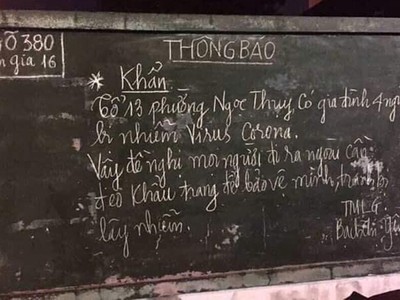 Õ 380
gia 16
THÔNG BÁO
* Khẩn.
Tổ 13 phường Ngọc Thụy có gia đình 4 ngư
bị nhiễm Virus Corona.
Vậy đề nghị mọi người đi ra ngoài cần
đeo khẩu trang để bảo vệ mình tránh bị
lây nhiễm.
TM